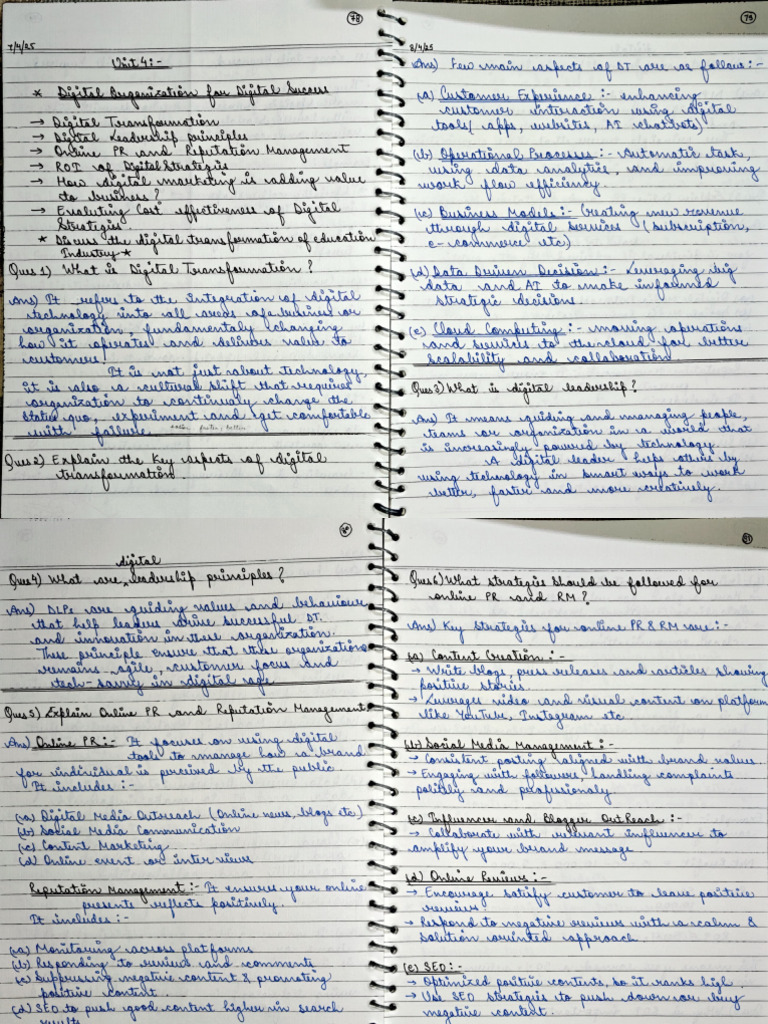 78
7/4/25
Unit 4:-
* Digital Organization for Digital Success
→ Digital Transformation
→ Digital Leadership principles
→ Online PR and Reputation Management
→ ROI of Digital Strategies
→ How digital marketing is adding value
to business?
→ Evaluting Cost effectiveness of Digital
Strategies.
* Discuss the digital transformation of education
Industry *
Ques 1) What is Digital Transformation?
Ans) It refers to the integration of digital
technology into all areas of a business or
organization, fundamentaly changing
how it operates and delivers value to
customers!
It is not just about technology,
it is also a cultural shift that requires
organization to continualy change the
status quo, experiment and get comfortable
with failure.
Ques 2) Explain the Key aspects of digital
transformation.
79
8/4/25
Ans) Few main aspects of DT are as follows:-
(a) Customer Experience:- enhancing
customer interaction using digital
tools (apps, websites, AI chatbots)
(b) Operational Processes:- Automatic task,
using data analytics, and improving
work flow efficiency.
(c) Business Models:- Creating new revenue
through digital services (subscription,
e-commerce etc)
(d) Data Driven Decision:- Leveraging big
data and AI to make informed
strategic decisions.
(e) Cloud Computing:- moving operations
and services to the cloud for better
scalability and collaboration.
Ques 3) What is digital leadership?
Ans) It means guiding and managing people,
teams or organization in a world that
is increasingly powered by technology.
A digital leader helps others by
using technology in smart ways to work
better, faster and more creatively.
80
digital
Ques 4) What are leadership principles?
Ans) DLPs are guiding values and behaviour
that help leaders drive successful DT.
and innovation in these organization.
These principle ensure that these organizations
remains agile, customer focus and
tech-savvy in digital age
Ques 5) Explain Online PR and Reputation Management
Ans) Online PR:- It focuses on using digital
tools to manage how a brand
for individual is perceived by the public
It includes:-
(a) Digital Media Outreach (Online news, blogs etc)
(b) Social Media Communication
(c) Content Marketing
(d) Online event or interviews
Reputation Management:- It ensures your online
presente reflects positively.
It includes:-
(a) Monitoring across platforms
(b) Responding to reviews and comments
(c) Suppressing negative content & promoting
positive content.
(d) SEO to push good content higher in search
results
81
Ques 6) What strategies should be followed for
online PR and RM?
Ans) Key Strategies for online PR & RM are:-
(a) Content Creation:-
→ Write blogs, press releases and articles showing
positive stories.
→ Leverages video and visual content on platform
like YouTube, Instagram etc
(b) Social Media Management:-
→ Consistent posting aligned with brand values.
→ Engaging with followers, handling complaints
politly and professionaly
(c) Influencer and Blogger OutReach:-
→ Collaborate with relevant influencer to
amplify your brand message
(d) Online Reviews:-
→ Encourage satisfy customer to leave positive
reviews
→ Respond to negative reviews with a calm &
solution oriented approach
(e) SEO:-
→ Optimized positive contents, so it ranks high
→ Use SEO strategies to push down or bury
negative content.